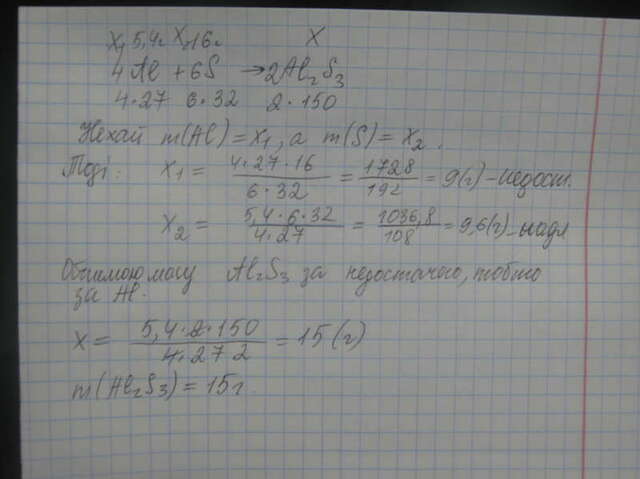 X₁ 5,4г X₂ 16г X
4Al + 6S → 2Al₂S₃
4·27 6·32 2·150
Нехай m(Al) = X₁, а m(S) = X₂.
Тоді: X₁ = 4·27·16 / 6·32 = 1728 / 192 = 9(г) – недост.
X₂ = 5,4·6·32 / 4·27 = 1036,8 / 108 = 9,6(г) – надл
масу Al₂S₃ за недостачою, тобто
за Al.
X = 5,4·2·150 / 4·27 2 = 15(г)
m(Al₂S₃) = 15г.